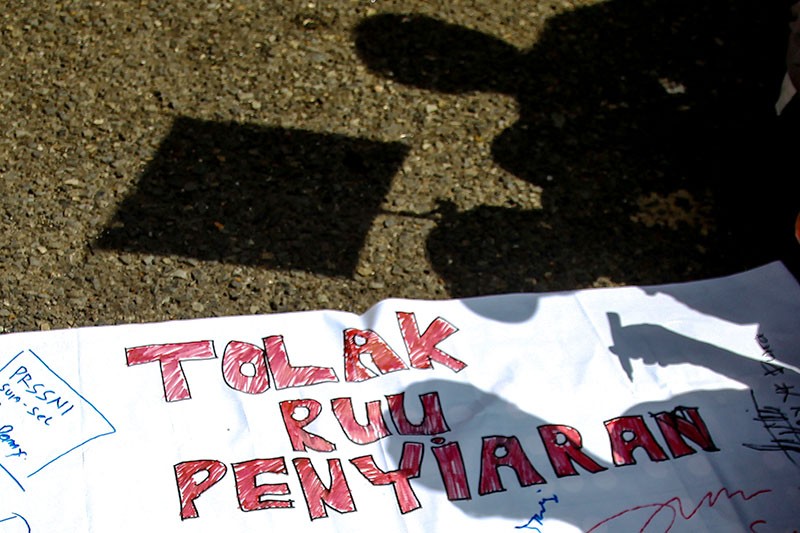 TOLAK
RUU
PENYIARAN
PRSSNI
SUM-SEL